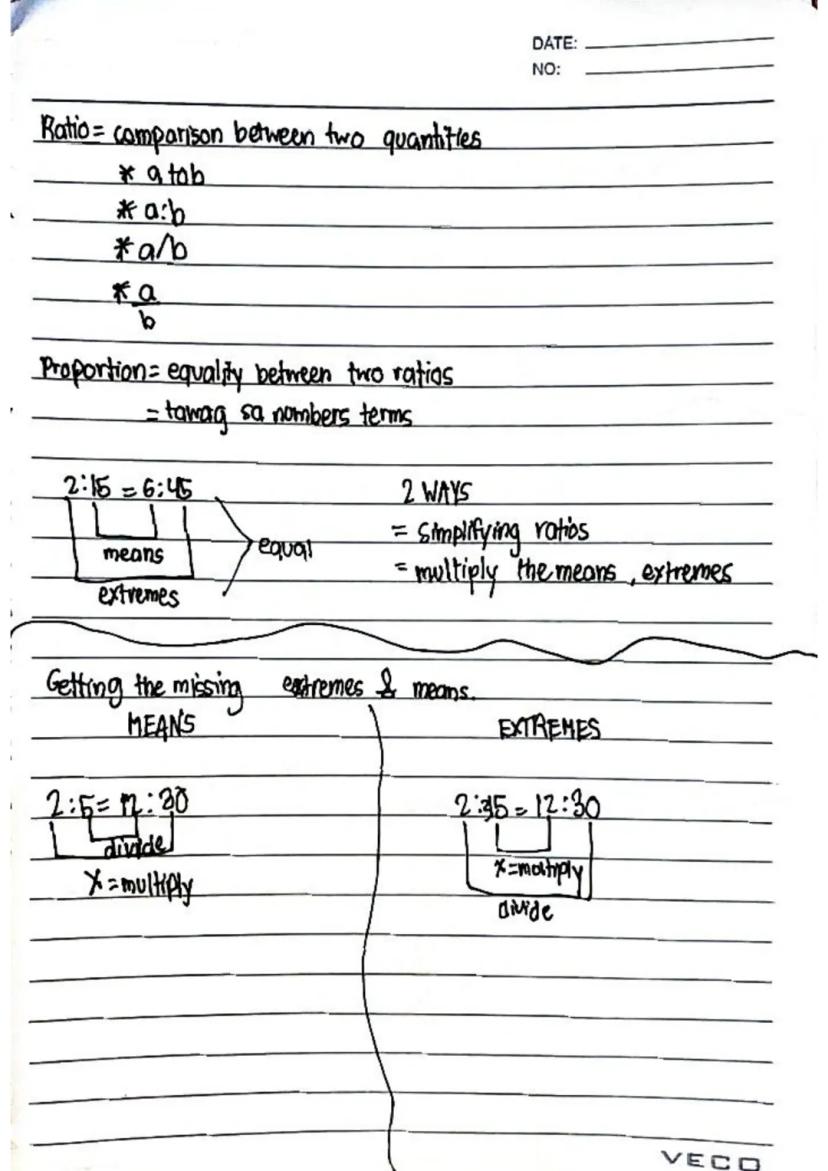 DATE:
NO:
Ratio = comparison between two quantities
* a to b
* a:b
* a/b
* a
b
Proportion = equality between two ratios
= tawag sa numbers terms
2:15 = 6:45
means
extremes
equal
2 WAYS
= simplifying ratios
= multiply the means, extremes
Getting the missing extremes & means.
MEANS
2:5 = 12:30
divide
X = multiply
EXTREMES
2:5 = 12:30
X = multiply
divide
VECO